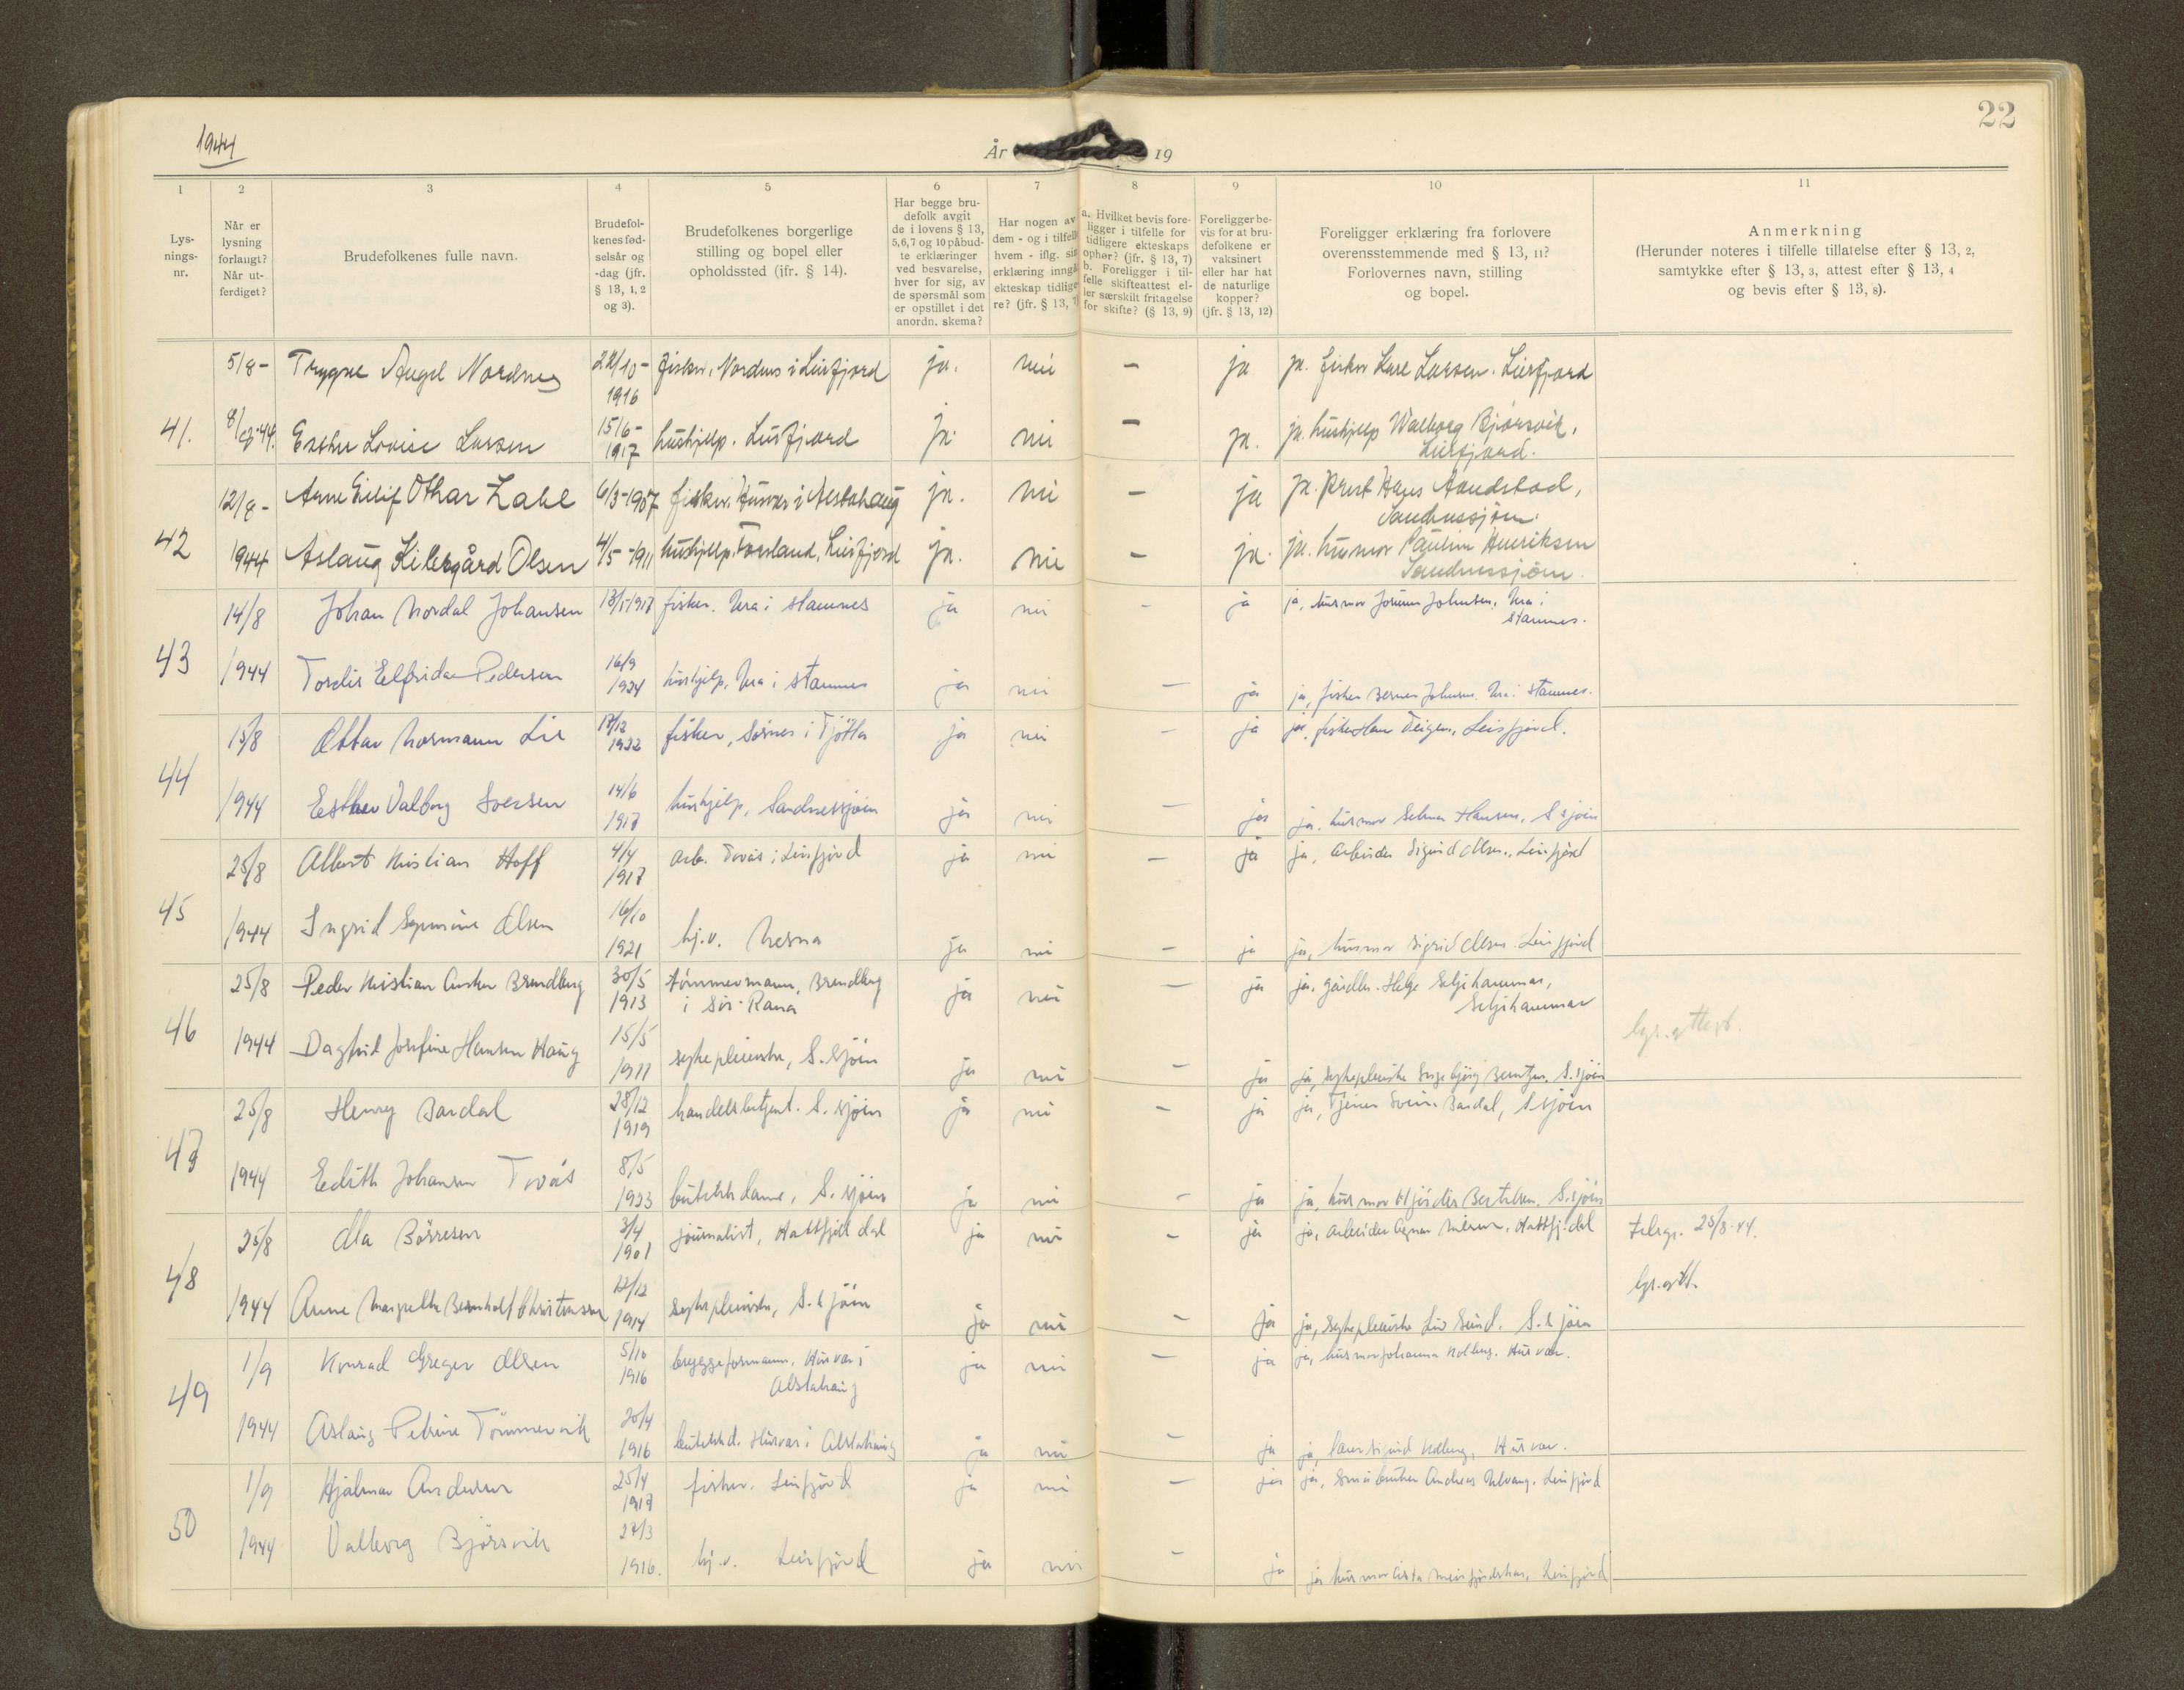 22
1944
År 19
1 2 3 4 5 6 7 8 9 10 11
Lys-
nings-
nr.
Når er
lysning
forlangt?
Når ut-
ferdiget?
Brudefolkenes fulle navn.
Brudefol-
kenes fød-
selsår og
-dag (jfr.
§ 13, 1, 2
og 3).
Brudefolkenes borgerlige
stilling og bopel eller
opholdssted (jfr. § 14).
Har begge bru-
defolk avgit
de i lovens § 13,
5, 6, 7 og 10 påbud-
te erklæringer
ved besvarelse,
hver for sig, av
de spørsmål som
er opstillet i det
anordn. skema?
Har nogen av
dem - og i tilfelle
hvem - iflg. sin
erklæring inngå
ekteskap tidlige
re? (jfr. § 13, 7
a. Hvilket bevis fore-
ligger i tilfelle for
tidligere ekteskaps
ophør? (jfr. § 13, 7)
b. Foreligger i til-
felle skifteattest el-
ler særskilt fritagelse
for skifte? (§ 13, 9)
Foreligger be-
vis for at bru-
defolkene er
vaksinert
eller har hat
de naturlige
kopper?
(jfr. § 13, 12)
Foreligger erklæring fra forlovere
overensstemmende med § 13, 11?
Forlovernes navn, stilling
og bopel.
Anmerkning
(Herunder noteres i tilfelle tillatelse efter § 13, 2,
samtykke efter § 13, 3, attest efter § 13, 4
og bevis efter § 13, 8).
5/8- Trygve Nordnes 10- 1916 fisker, Nordnes i Leirfjord ja. nei - ja ja. fisker Kare Larsen. Leirfjord
41. 8/9-44. Esther Lovise Larsen 15/6- 1917 hushjelp. Leirfjord ja. nei - ja. ja. hushjelp Walborg Bjørsvik,
Leirfjord.
12/8- Arne Eilif Othar Zahl 6/3-1907 fisker. Husvær i Alstahaug ja. nei - ja ja. prest Hans Aandstad,
Sandnessjøen.
42 1944 Aslaug Kilesgård Olsen 4/5-1911 hushjelp. Forsland, Leirfjord ja. nei - ja. ja. husmor Pauline Henriksen
Sandnessjøen.
14/8 Johan Nordal Johansen 13/5-1917 fisker. Ura i Stamnes ja nei - ja ja, husmor Jorunn Johnsen, Ura i
Stamnes.
43 1944 Tordis Elfrida Pedersen 16/9 1924 hushjelp, Ura i Stamnes ja nei - ja ja, fisker Berner Johnsen. Ura i Stamnes.
15/8 Ottar Normann Lie 17/12 1922 fisker, Sörnes i Tjötta ja nei - ja ja, fisker Hans Teigen, Leirfjord.
44 1944 Esther Valborg Iversen 14/6 1917 hushjelp, Sandnessjöen ja nei - ja ja, husmor Selma Hansen, S sjöen
25/8 Albert Kristian Hoff 4/4 1917 arb. Tovås i Leirfjord ja nei - ja ja, arbeider Sigurd Olsen, Leirfjord
45 1944 Ingrid Olsen 16/10 1921 hj.v. Nesna ja nei - ja ja, husmor Sigrid Olsen. Leirfjord
25/8 Peder Kristian Anker Brendberg 30/5 1913 tömmermann, Brendberg
i Sör-Rana ja nei - ja ja, gårdbr. Helge Seljehammar,
Seljehammar
46 1944 Dagfrid Josefine Hansen Haug 15/5 1911 sykepleierske, S. sjöen ja nei - ja ja, sykepleierske Ingebjörg Berntzen. S. sjöen
25/8 Henry Bardal 28/12 1919 handelsbetjent. S. sjöen ja nei - ja ja, Svein Bardal, S sjöen
47 1944 Edith Johansen Tovås 8/5 1923 butikkdame, S. sjöen ja nei - ja ja, husmor Hjördis Bertelsen. S. sjöen
25/8 Ola Börresen 3/4 1901 journalist, Hattfjelldal ja nei - ja ja, arbeider Agnar Nilsen, Hattfj.dal telegr. 25/8-44.
48 1944 Anne Margrethe Bernhoft Christensen 12/12 1914 sykepleierske, S. sjöen ja nei - ja ja, sykepleierske Liv Sund. S. sjöen
1/9 Konrad Greger Olsen 5/10 1916 bryggeformann. Husvær i
Alstahaug ja nei - ja ja, husmor Johanna Kolberg. Husvær.
49 1944 Aslaug Petrine Tömmervik 20/4 1916 butikkd. Husvær i Alstahaug ja nei - ja ja, Sigurd Kolberg, Husvær.
1/9 Hjalmar Andersen 25/4 1917 fisker. Leirfjord ja nei - ja ja, småbruker Andreas Ulvang. Leirfjord
50 1944 Valborg Björsvik 27/3 1916. hj.v. Leirfjord ja nei - ja ja husmor Asta Meisfjordskar, Leirfjord